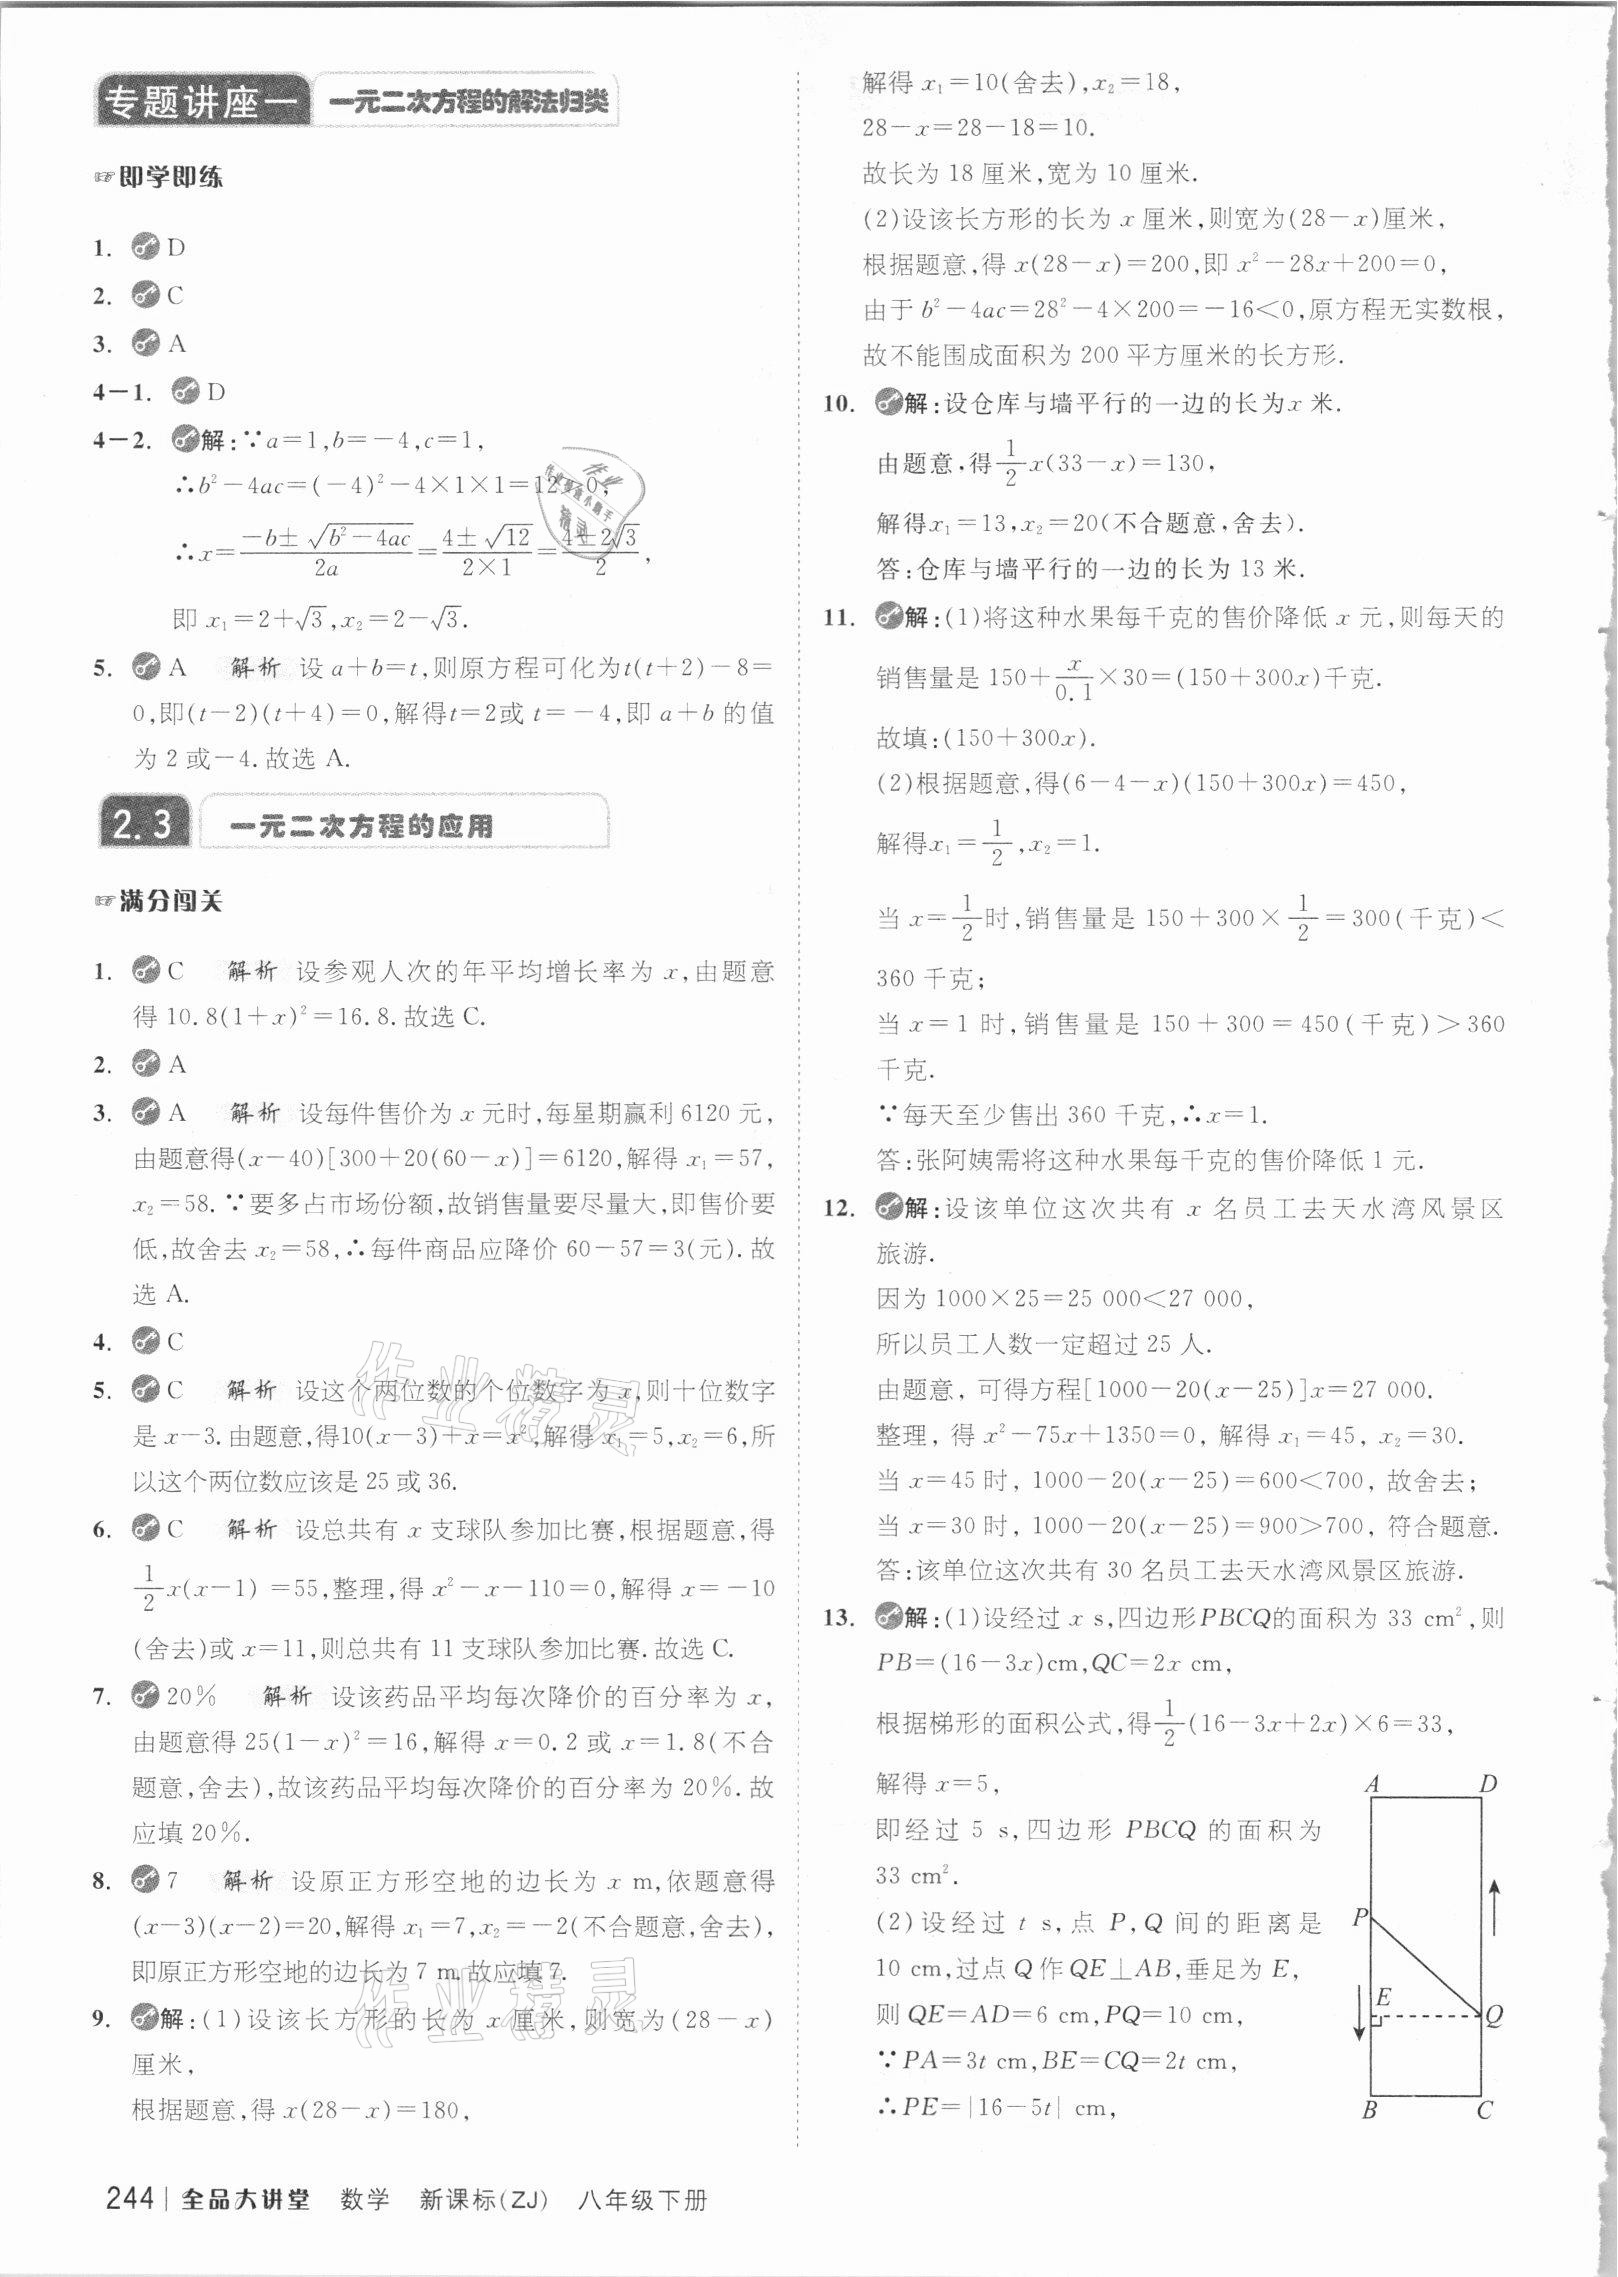 专题讲座一 一元二次方程的解法归类
☞即学即练
1. D
2. C
3. A
4-1. D
4-2. 解:∵a=1,b=-4,c=1,
∴b²-4ac=(-4)²-4×1×1=12>0,
∴x=(-b±√(b²-4ac))/(2a)=(4±√12)/(2×1)=(4±2√3)/2,
即 x₁=2+√3,x₂=2-√3.
5. A 解析 设 a+b=t,则原方程可化为t(t+2)-8=
0,即(t-2)(t+4)=0,解得t=2或 t=-4,即 a+b 的值
为 2 或-4.故选 A.
2.3 一元二次方程的应用
☞满分闯关
1. C 解析 设参观人次的年平均增长率为 x,由题意
得 10.8(1+x)²=16.8.故选 C.
2. A
3. A 解析 设每件售价为 x 元时,每星期赢利 6120 元,
由题意得(x-40)[300+20(60-x)]=6120,解得 x₁=57,
x₂=58.∵要多占市场份额,故销售量要尽量大,即售价要
低,故舍去 x₂=58,∴每件商品应降价 60-57=3(元).故
选 A.
4. C
5. C 解析 设这个两位数的个位数字为 x,则十位数字
是 x-3.由题意,得10(x-3)+x=x²,解得 x₁=5,x₂=6,所
以这个两位数应该是 25 或 36.
6. C 解析 设总共有 x 支球队参加比赛,根据题意,得
1/2x(x-1) =55,整理,得 x²-x-110=0,解得 x=-10
(舍去)或 x=11,则总共有 11 支球队参加比赛.故选 C.
7. 20% 解析 设该药品平均每次降价的百分率为 x,
由题意得 25(1-x)²=16,解得 x=0.2 或 x=1.8(不合
题意,舍去),故该药品平均每次降价的百分率为 20%.故
应填 20%.
8. 7 解析 设原正方形空地的边长为 x m,依题意得
(x-3)(x-2)=20,解得 x₁=7,x₂=-2(不合题意,舍去),
即原正方形空地的边长为 7 m.故应填 7.
9. 解:(1)设该长方形的长为 x 厘米,则宽为(28-x)
厘米,
根据题意,得 x(28-x)=180,
解得 x₁=10(舍去),x₂=18,
28-x=28-18=10.
故长为 18 厘米,宽为 10 厘米.
(2)设该长方形的长为 x 厘米,则宽为(28-x)厘米,
根据题意,得 x(28-x)=200,即 x²-28x+200=0,
由于 b²-4ac=28²-4×200=-16<0,原方程无实数根,
故不能围成面积为 200 平方厘米的长方形.
10. 解:设仓库与墙平行的一边的长为x 米.
由题意,得1/2x(33-x)=130,
解得x₁=13,x₂=20(不合题意,舍去).
答:仓库与墙平行的一边的长为 13 米.
11. 解:(1)将这种水果每千克的售价降低 x 元,则每天的
销售量是 150+x/0.1×30=(150+300x)千克.
故填:(150+300x).
(2)根据题意,得(6-4-x)(150+300x)=450,
解得x₁=1/2,x₂=1.
当 x=1/2时,销售量是 150+300×1/2=300(千克)<
360 千克;
当 x=1 时,销售量是 150+300=450(千克)>360
千克.
∵每天至少售出 360 千克,∴x=1.
答:张阿姨需将这种水果每千克的售价降低 1 元.
12. 解:设该单位这次共有 x 名员工去天水湾风景区
旅游.
因为 1000×25=25 000<27 000,
所以员工人数一定超过 25 人.
由题意, 可得方程[1000-20(x-25)]x=27 000.
整理, 得 x²-75x+1350=0, 解得 x₁=45, x₂=30.
当 x=45 时, 1000-20(x-25)=600<700, 故舍去;
当 x=30 时, 1000-20(x-25)=900>700, 符合题意.
答:该单位这次共有 30 名员工去天水湾风景区旅游.
13. 解:(1)设经过 x s,四边形PBCQ的面积为 33 cm²,则
PB=(16-3x)cm,QC=2x cm,
根据梯形的面积公式,得1/2(16-3x+2x)×6=33,
解得 x=5,
即经过 5 s,四边形 PBCQ 的面积为
33 cm².
(2)设经过 t s,点 P,Q 间的距离是
10 cm,过点 Q 作 QE⊥AB,垂足为 E,
则 QE=AD=6 cm,PQ=10 cm,
∵PA=3t cm,BE=CQ=2t cm,
∴PE=|16-5t| cm,
A D
P
E
Q
B C
244 | 全品大讲堂 数学 新课标(ZJ) 八年级下册
作业精灵
作业精灵